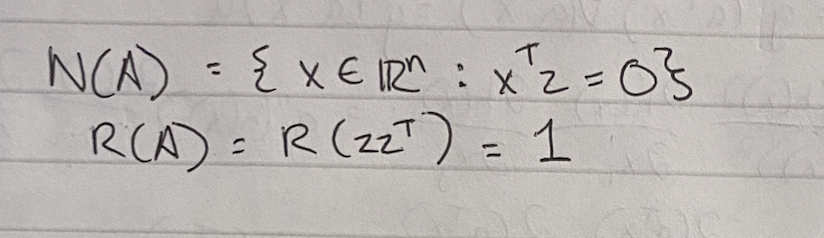 N(A) = { x ∈ ℝⁿ : xᵀz = 0}
R(A) = R(zzᵀ) = 1